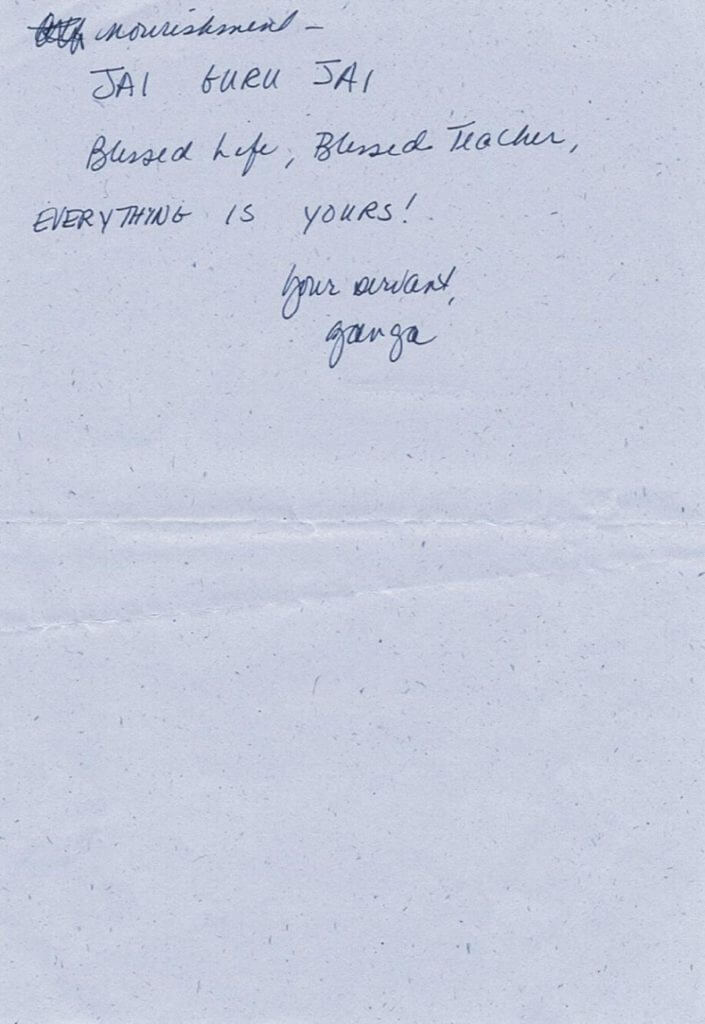 nourishment –
JAI GURU JAI
Blessed Life, Blessed Teacher,
EVERYTHING IS YOURS!
Your servant,
ganga